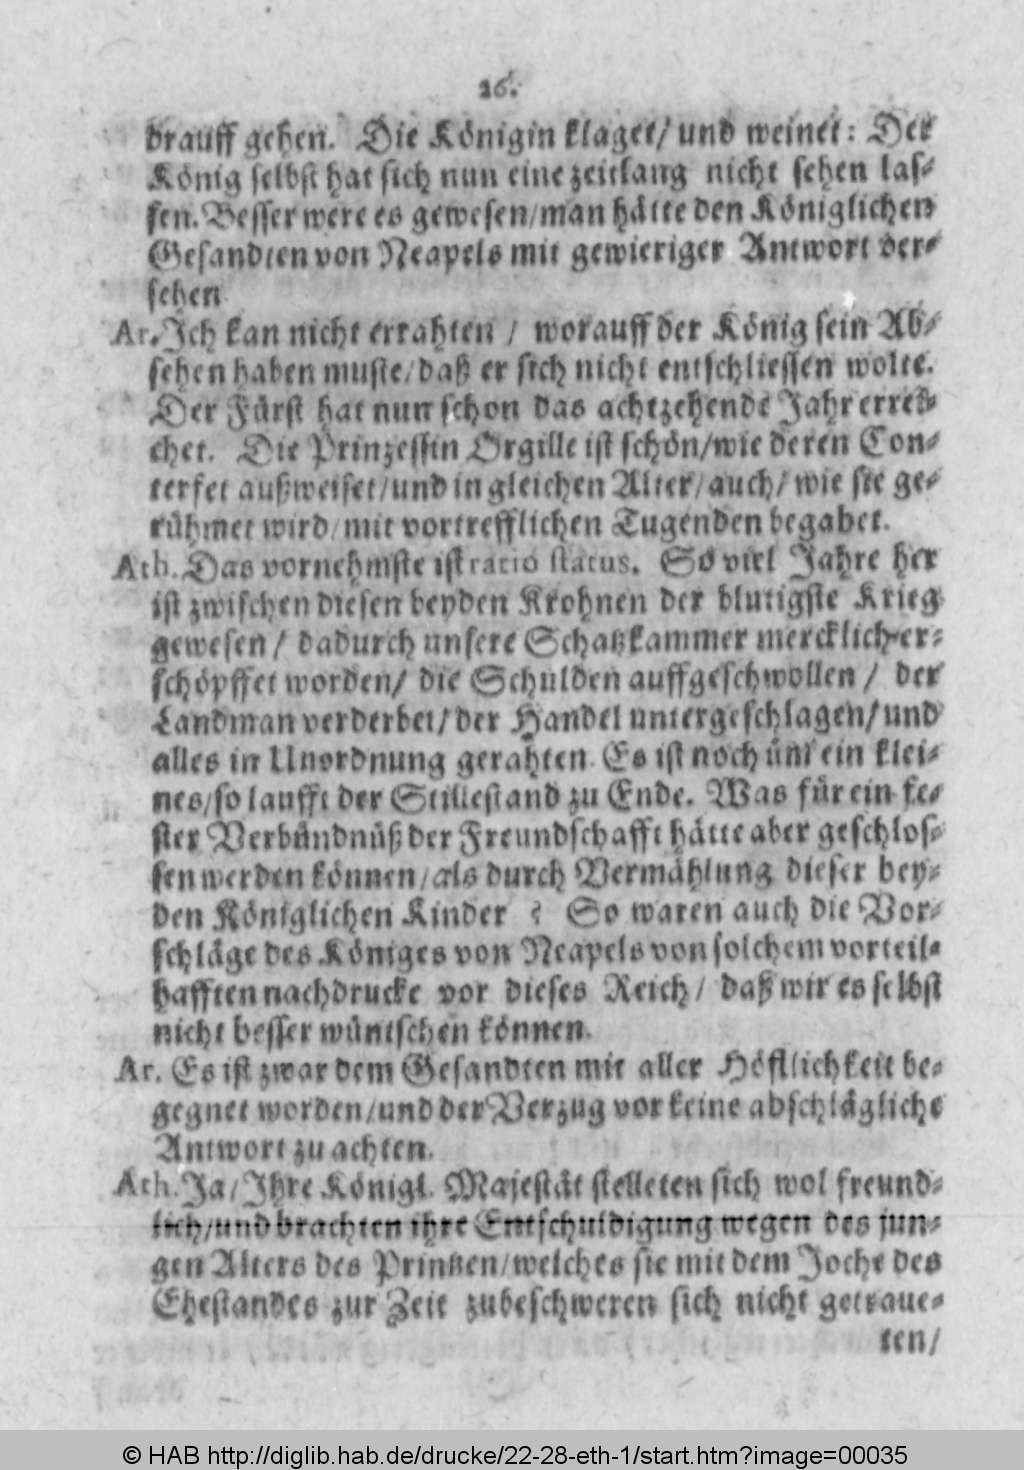 26.
drauff gehen. Die Königin klaget/ und weinet: Der
König selbst hat sich nun eine zeitlang nicht sehen las-
sen. Besser were es gewesen/ man hätte den Königlichen
Gesandten von Neapels mit gewieriger Antwort ver-
sehen
Ar. Ich kan nicht errahten / worauff der König sein Ab-
sehen haben muste/ daß er sich nicht entschliessen wolte.
Der Fürst hat nun schon das achtzehende Jahr errei-
chet. Die Prinzessin Orgille ist schön/ wie deren Con-
terfet außweiset/ und in gleichen Alter/ auch/ wie sie ge-
rühmet wird/ mit vortrefflichen Tugenden begabet.
Ach. Das vornehmste ist ratio status. So viel Jahre her
ist zwischen diesen beyden Krohnen der blutigste Krieg
gewesen/ dadurch unsere Schatzkammer mercklich er-
schöpffet worden/ die Schulden auffgeschwollen / der
Landman verderbet/ der Handel untergeschlagen/ und
alles in Unordnung gerahten. Es ist noch üm ein klei-
nes/ so laufft der Stillestand zu Ende. Was für ein fe-
ster Verbündnüß der Freundschafft hätte aber geschlos-
sen werden können/ als durch Vermählung dieser bey-
den Königlichen Kinder ? So waren auch die Vor-
schläge des Königes von Neapels von solchem vorteil-
hafften nachdrucke vor dieses Reich/ daß wir es selbst
nicht besser wüntschen können.
Ar. Es ist zwar dem Gesandten mit aller Höfllichkeit be-
gegnet worden/ und der Verzug vor keine abschlägliche
Antwort zu achten.
Ach. Ja/ Ihre Königl. Majestät stelleten sich wol freund-
lich/ und brachten ihre Entschuldigung wegen des jun-
gen Alters des Printzen/ welches sie mit dem Joche des
Ehestandes zur Zeit zubeschweren sich nicht getraue-
ten/
© HAB http://diglib.hab.de/drucke/22-28-eth-1/start.htm?image=00035